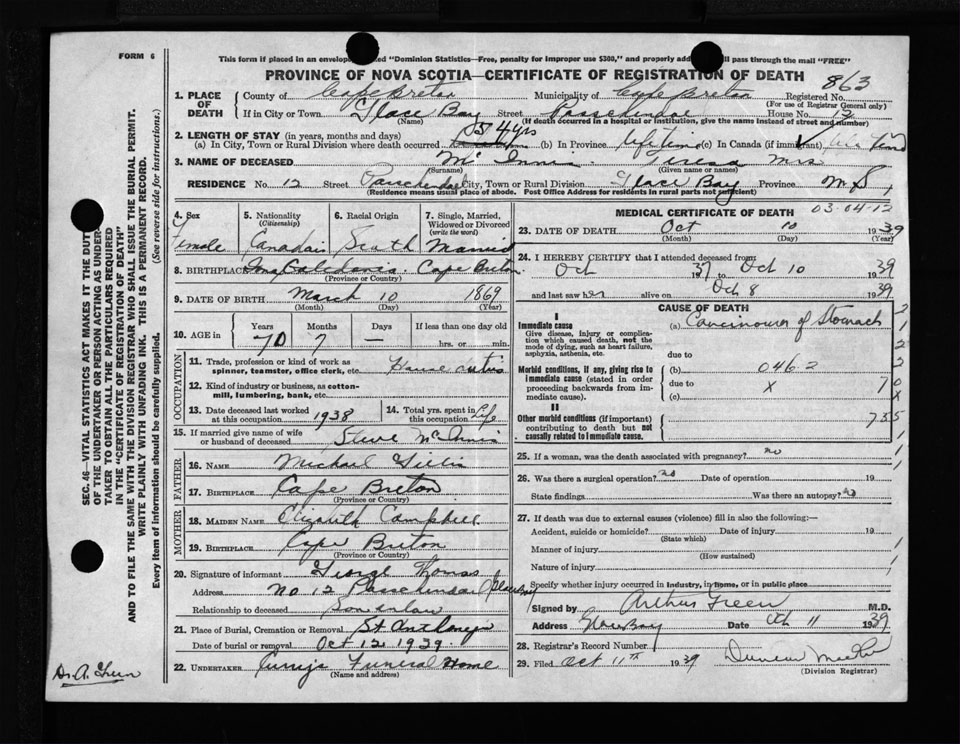 FORM 6
This form if placed in an envelop ed "Dominion Statistics—Free, penalty for improper use $300," and properly add ll pass through the mail "FREE"
PROVINCE OF NOVA SCOTIA—CERTIFICATE OF REGISTRATION OF DEATH
863
1. PLACE OF DEATH County of Cape Breton Municipality of Cape Breton Registered No.
(For use of Registrar General only)
If in City or Town Glace Bay Street Passchendal House No. 12
(Name) (If death occurred in a hospital or institution, give the name instead of street and number)
2. LENGTH OF STAY (in years, months and days)
(a) In City, Town or Rural Division where death occurred 54 yrs (b) In Province life time (c) In Canada (if immigrant) life time
3. NAME OF DECEASED McInnis Teresa Mrs
(Surname) (Given name or names)
RESIDENCE No. 12 Street Passchendael City, Town or Rural Division Glace Bay Province N.S.
(Residence means usual place of abode. Post Office Address for residents in rural parts not sufficient)
4. Sex Female
5. Nationality (Citizenship) Canadian
6. Racial Origin Scotch
7. Single, Married, Widowed or Divorced (write the word) Married
8. BIRTHPLACE Caledonia Cape Breton
(Province or Country)
9. DATE OF BIRTH March 10 1869
(Month) (Day) (Year)
10. AGE in Years Months Days If less than one day old
70 7 — hrs. or min.
OCCUPATION
11. Trade, profession or kind of work as spinner, teamster, office clerk, etc. House duties
12. Kind of industry or business, as cotton-mill, lumbering, bank, etc.
13. Date deceased last worked at this occupation 1938
14. Total yrs. spent in this occupation Life
15. If married give name of wife or husband of deceased Steve McInnis
FATHER
16. NAME Michael Gillis
17. BIRTHPLACE Cape Breton
(Province or Country)
MOTHER
18. MAIDEN NAME Elizabeth Campbell
19. BIRTHPLACE Cape Breton
(Province or Country)
20. Signature of informant George Thomas
Address No 12 Passchendael Glace Bay
Relationship to deceased Son in law
21. Place of Burial, Cremation or Removal St Anthonys
Date of burial or removal Oct 12 1939
22. UNDERTAKER Curry's Funeral Home
(Name and address)
MEDICAL CERTIFICATE OF DEATH
03-04-12
23. DATE OF DEATH Oct 10 1939
(Month) (Day) (Year)
24. I HEREBY CERTIFY that I attended deceased from
Oct 1937 to Oct 10 1939
and last saw her alive on Oct 8 1939
CAUSE OF DEATH
I
Immediate cause
Give disease, injury or complication which caused death, not the mode of dying, such as heart failure, asphyxia, asthenia, etc.
(a) Carcinoma of Stomach
due to
Morbid conditions, if any, giving rise to immediate cause (stated in order proceeding backwards from immediate cause).
(b) 046-2
due to X
(c)
II
Other morbid conditions (if important) contributing to death but not causally related to immediate cause.
25. If a woman, was the death associated with pregnancy? no
26. Was there a surgical operation? no Date of operation 19
State findings Was there an autopsy? no
27. If death was due to external causes (violence) fill in also the following:—
Accident, suicide or homicide? Date of injury 19
(State which)
Manner of injury
(How sustained)
Nature of injury
Specify whether injury occurred in industry, in home, or in public place
Signed by Arthur Green M.D.
Address Glace Bay Date Oct 11 1939
28. Registrar's Record Number
29. Filed Oct 11th 1939 Duncan
(Division Registrar)
SEC. 46—VITAL STATISTICS ACT MAKES IT THE DUT
OF THE UNDERTAKER OR PERSON ACTING AS UNDER-
TAKER TO OBTAIN ALL THE PARTICULARS REQUIRED
IN THE "CERTIFICATE OF REGISTRATION OF DEATH"
AND TO FILE THE SAME WITH THE DIVISION REGISTRAR WHO SHALL ISSUE THE BURIAL PERMIT.
WRITE PLAINLY WITH UNFADING INK. THIS IS A PERMANENT RECORD.
Every item of information should be carefully supplied. (See reverse side for instructions.)
Dr. A. Green